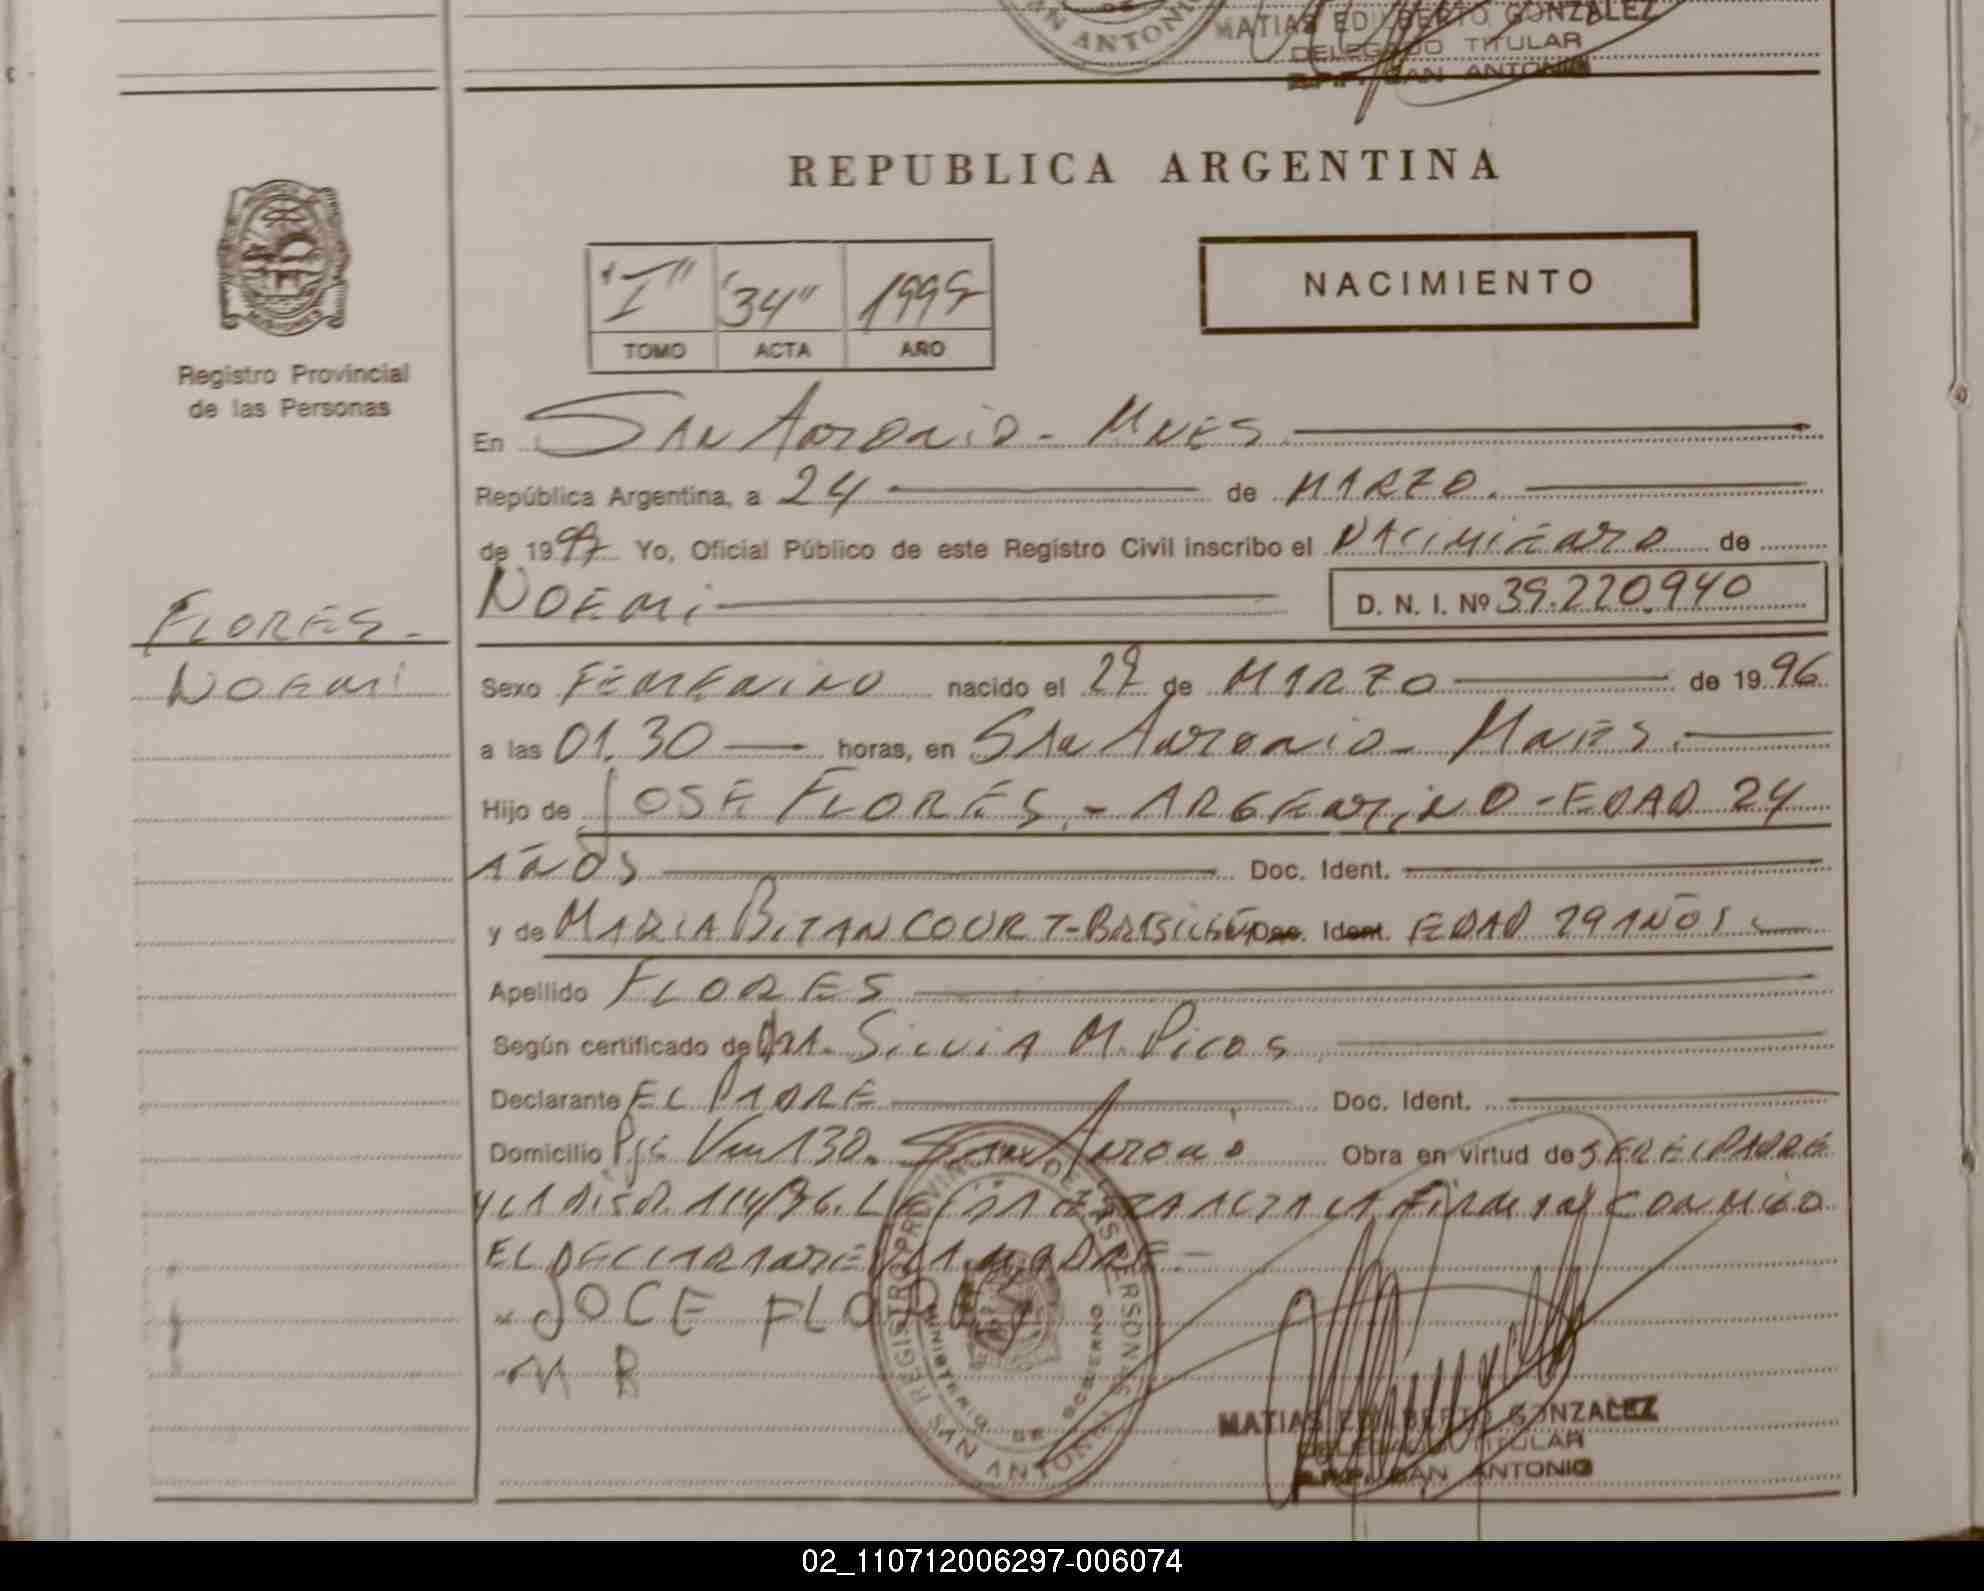 SAN ANTONIO
MATIAS EDILBERTO GONZALEZ
DELEGADO TITULAR
SAN ANTONIO
REPUBLICA ARGENTINA
"I" "34"
TOMO ACTA AÑO
NACIMIENTO
MISIONES
Registro Provincial
de las Personas
En San Antonio - Mnes
República Argentina, a 24 de MARZO.
de 1997 Yo, Oficial Público de este Registro Civil inscribo el NACIMIENTO de
NOEMI D. N. I. Nº 39.220.940
FLORES -
NOEMI
Sexo FEMENINO nacido el de MARZO de 1996
a las 01.30 horas, en SAN ANTONIO - Mnes.
Hijo de JOSE FLORES - ARGENTINO - EDAD 24
AÑOS Doc. Ident.
y de MARIA BITANCOURT - Doc. Ident. EDAD 29 AÑOS
Apellido FLORES
Según certificado de Dra. SILVIA M. Picos
Declarante EL PADRE Doc. Ident.
Domicilio 130. San Antonio Obra en virtud de SER EL PADRE
Y LA DISP. 114/96. CONMIGO
EL DECLARANTE Y LA MADRE -
x JOCE FLORES
M B
REGISTRO PROVINCIAL DE LAS PERSONAS
MINISTERIO DE GOBIERNO
SAN ANTONIO
MATIAS EDILBERTO GONZALEZ
DELEGADO TITULAR
R.P.P. SAN ANTONIO
02_110712006297-006074